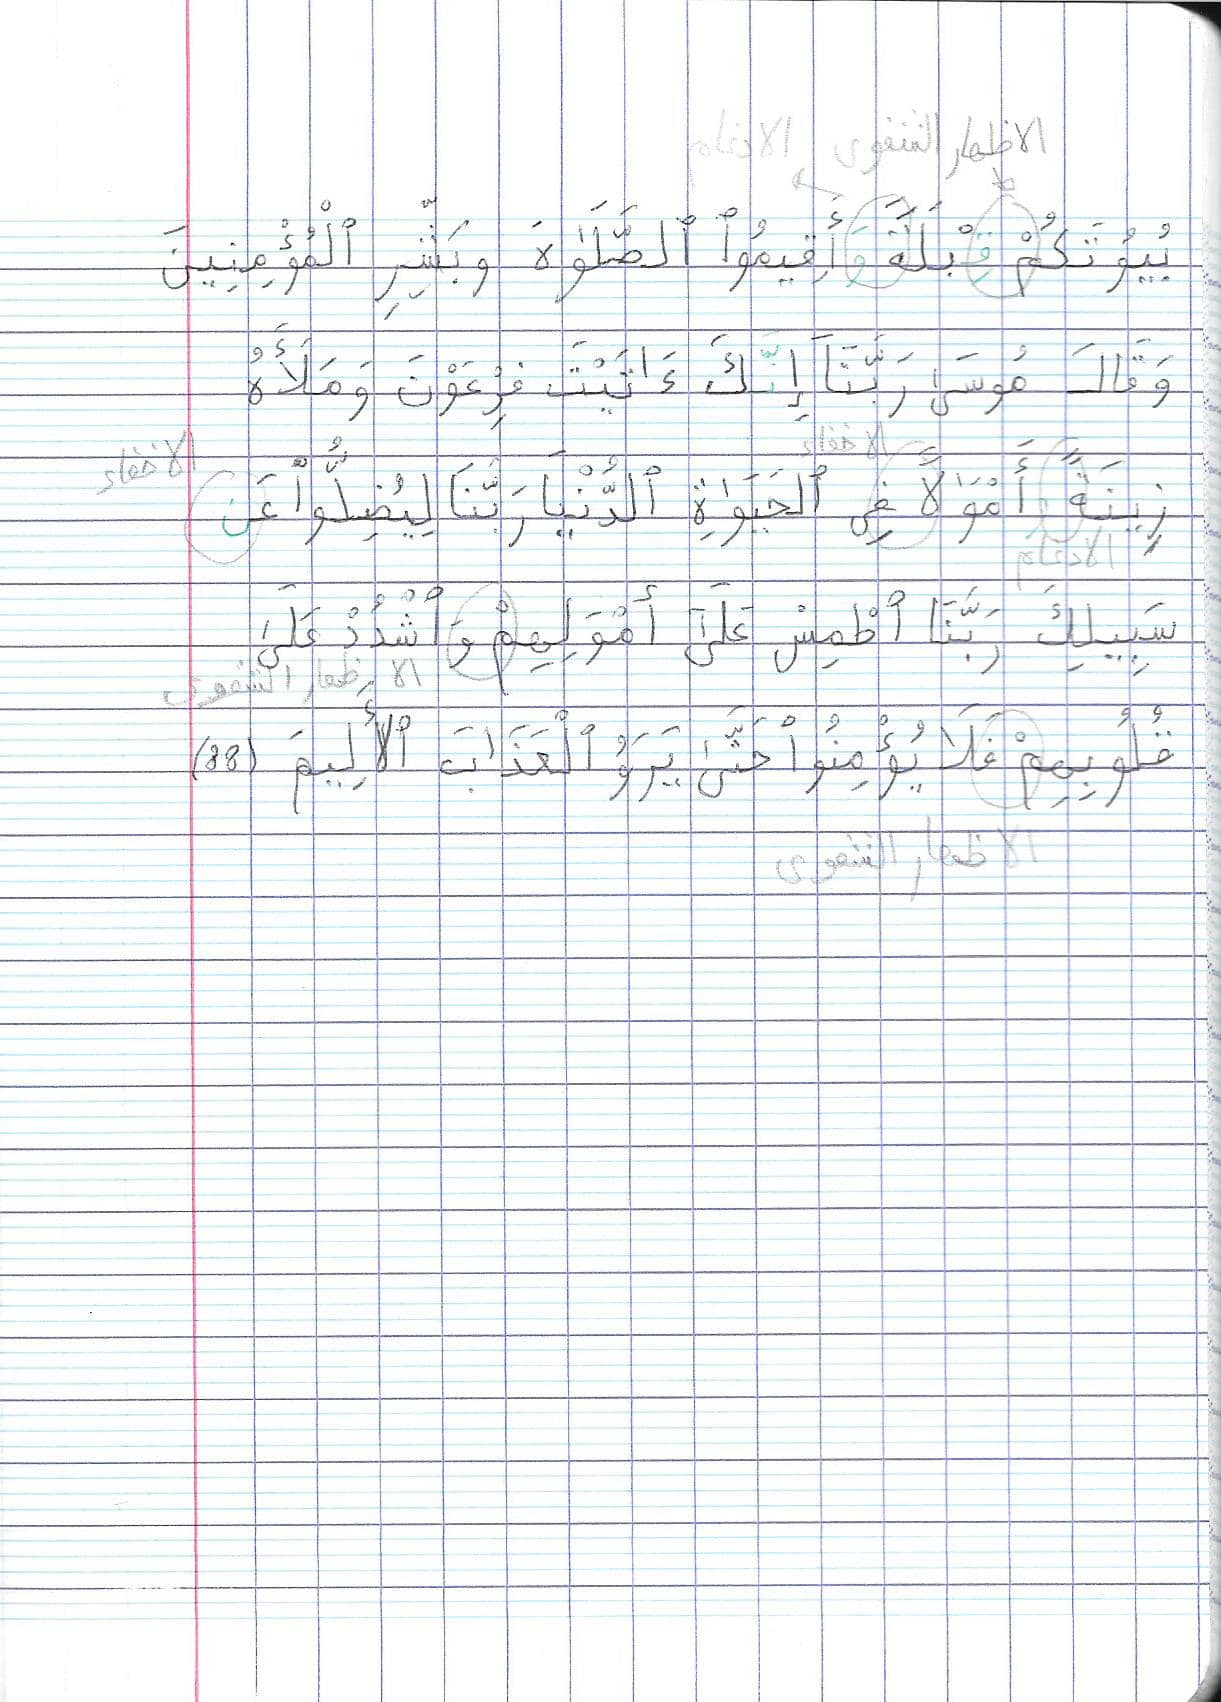 الاظهار الشفوي الادغام
بُيُوتَكُمْ قِبْلَةً وَأَقِيمُواْ ٱلصَّلَوٰةَ وبَشِّرِ ٱلْمُؤْمِنِينَ
وَقَالَ مُوسَىٰ رَبَّنَآ إِنَّكَ ءَاتَيْتَ فِرْعَوْنَ وَمَلَأَهُ
الاخفاء الاخفاء
زِينَةً أَمْوَٰلاً فِي ٱلحَيَوٰةِ ٱلدُّنْيَا رَبَّنَا لِيُضِلُّواْ عَن
الادغام
سَبِيلِكَ رَبَّنَا ٱطْمِسْ عَلَىٰٓ أَمْوَلِهِمْ وَٱشْدُدْ عَلَىٰ
الاظهار الشفوي
قُلُوبِهِمْ فَلَا يُؤْمِنُواْ حَتَّىٰ يَرَوُ ٱلْعَذَابَ ٱلأَلِيمَ (88)
الاظهار الشفوي